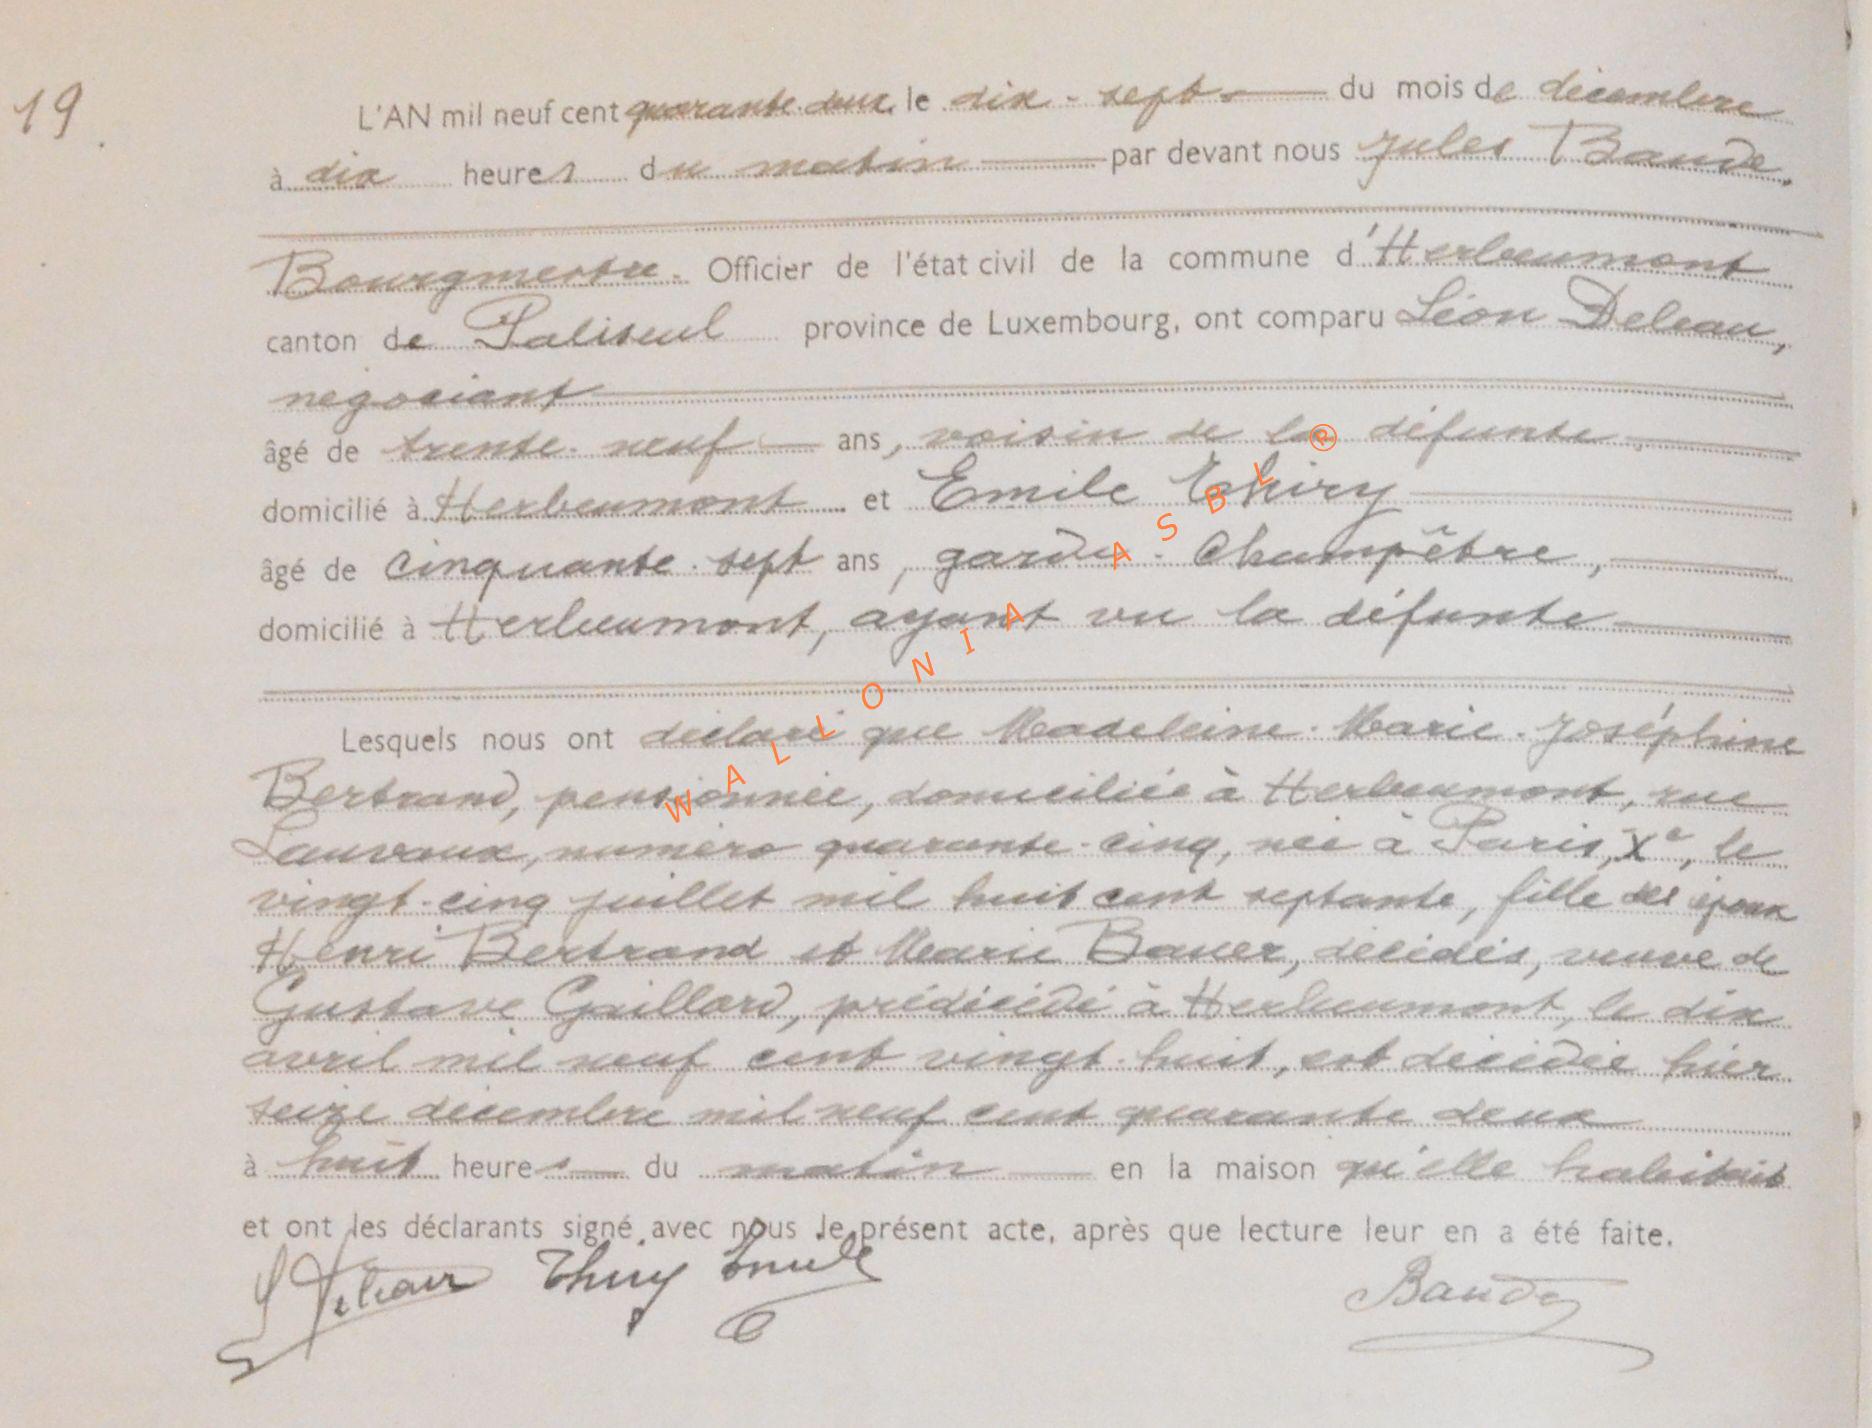 19.
L'AN mil neuf cent quarante-deux, le dix-sept du mois de décembre
à dix heures du matin par devant nous Jules Baude,
Bourgmestre. Officier de l'état civil de la commune d'Herbeumont
canton de Paliseul province de Luxembourg, ont comparu Léon Deleau,
négociant
âgé de trente-neuf ans, voisin de la défunte,
domicilié à Herbeumont et Emile Thiry
âgé de cinquante-sept ans, garde-champêtre,
domicilié à Herbeumont, ayant vu la défunte
Lesquels nous ont déclaré que Madeleine-Marie-Joséphine
Bertrand, pensionnée, domiciliée à Herbeumont, rue
Lauvaux, numéro quarante-cinq, née à Paris, Xe, le
vingt-cinq juillet mil huit cent septante, fille des époux
Henri Bertrand et Marie Bauer, décédés, veuve de
Gustave Gaillard, prédécédé à Herbeumont, le dix
avril mil neuf cent vingt-huit, est décédée hier
seize décembre mil neuf cent quarante deux
à huit heures du matin en la maison qu'elle habitait
et ont les déclarants signé avec nous le présent acte, après que lecture leur en a été faite.
L Deleau Thiry Emile Baude
WALLONIA ASBL ®